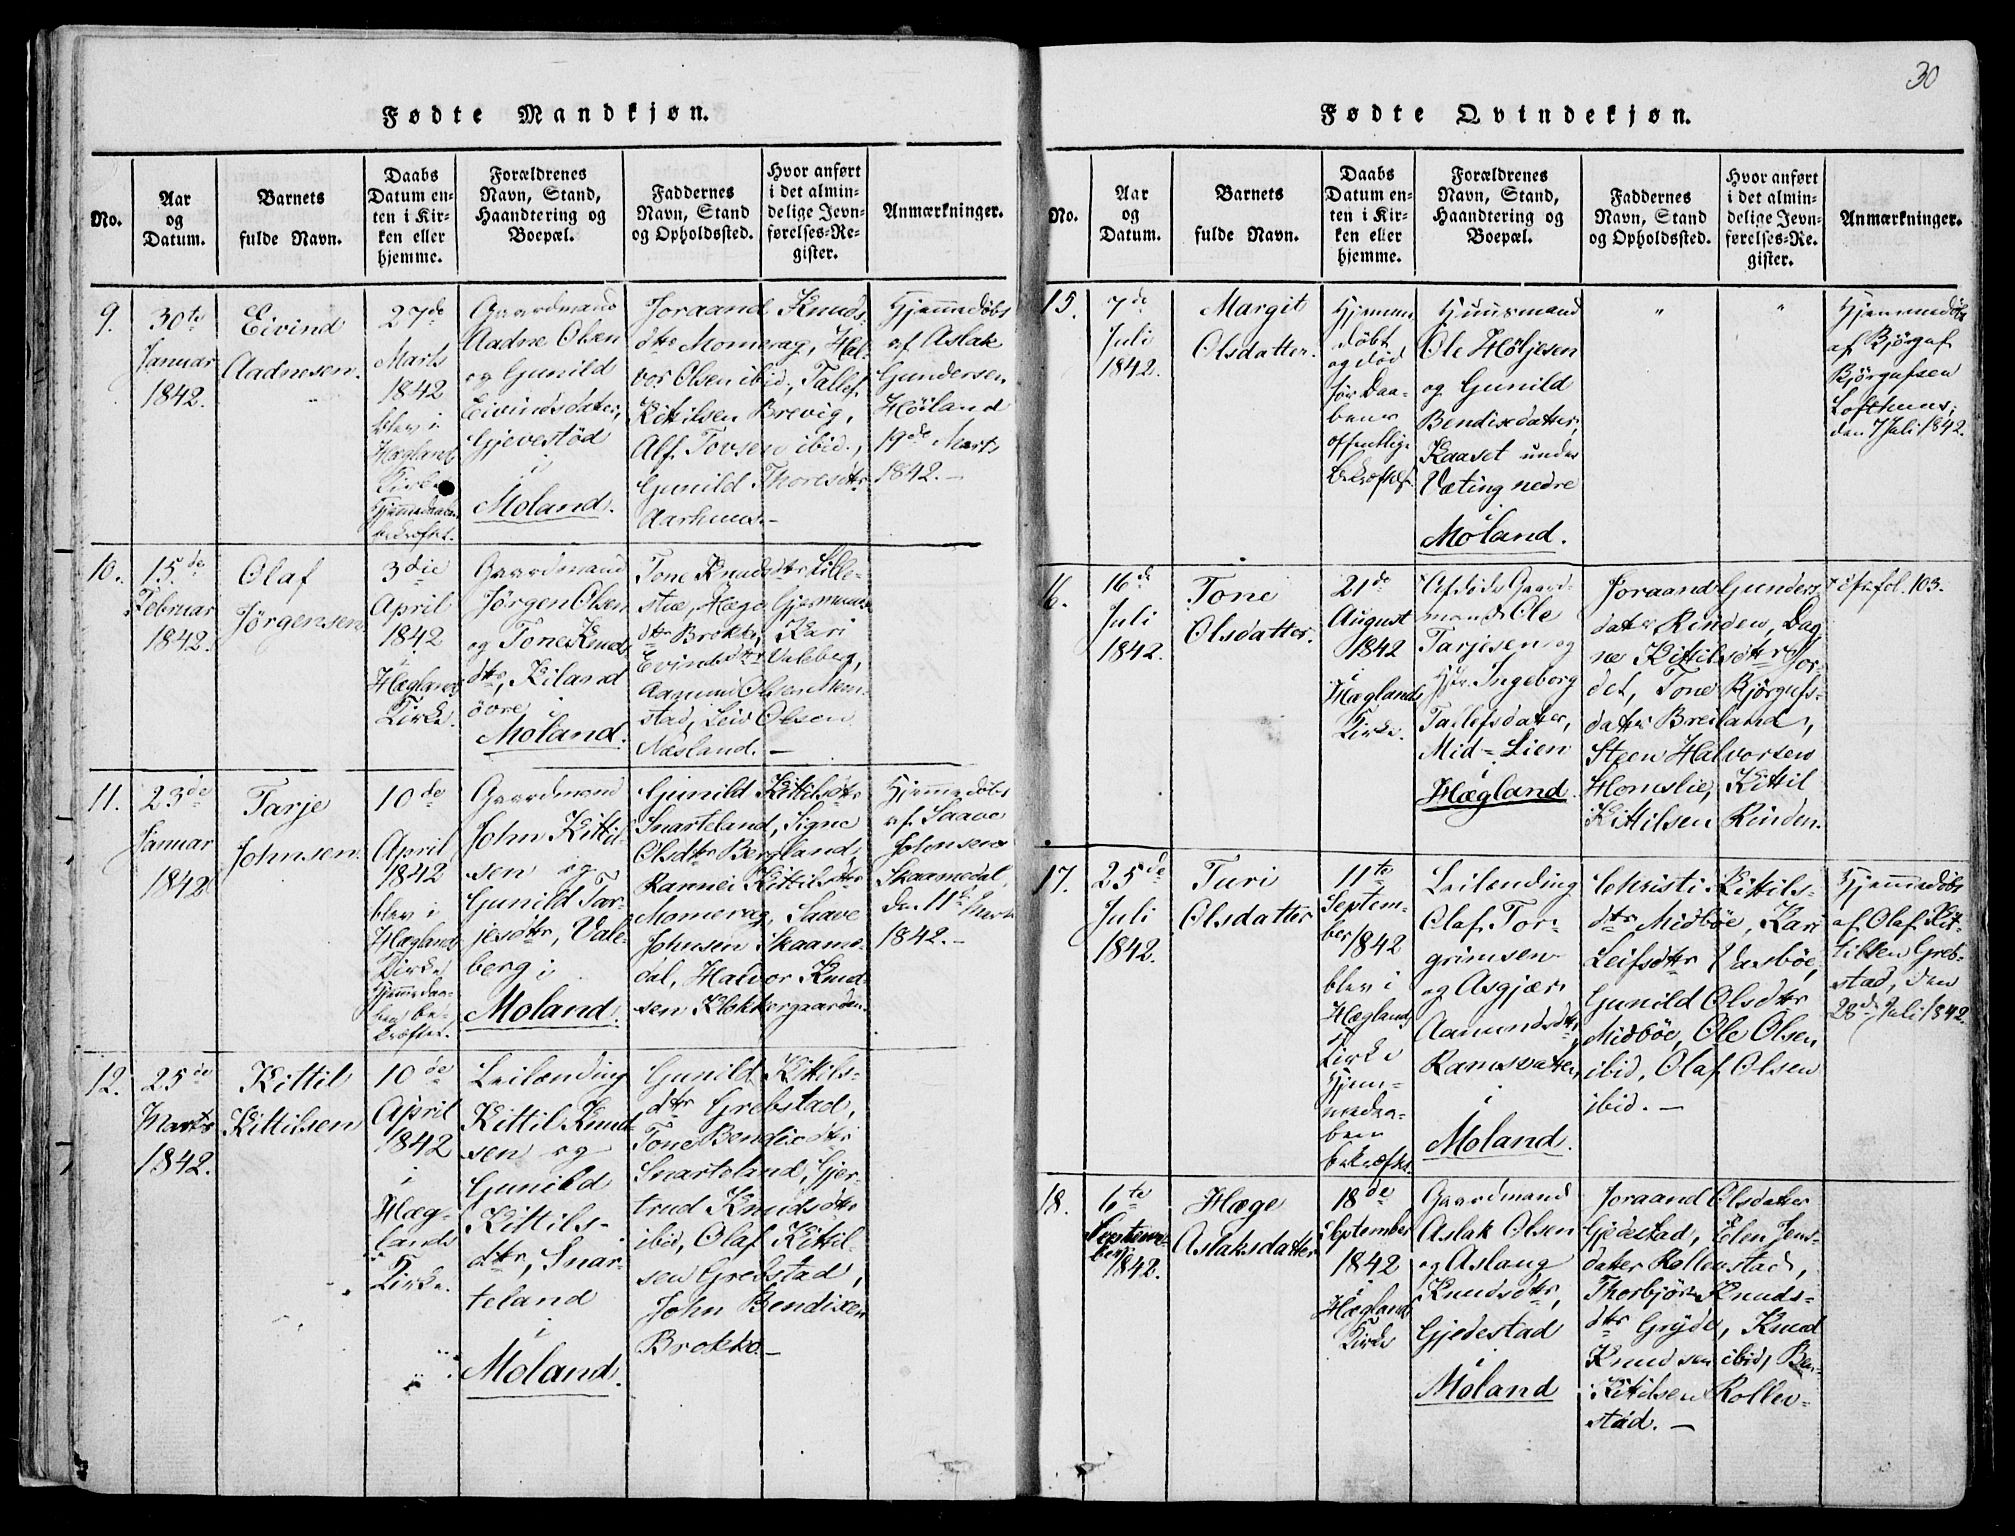 30
Fødte Mandkjøn.
No.
Aar
og
Datum.
Barnets
fulde Navn.
Daabs
Datum en-
ten i Kir-
ken eller
hjemme.
Forældrenes
Navn, Stand,
Haandtering og
Boepæl.
Faddernes
Navn, Stand
og Opholdssted.
Hvor anført
i det almin-
delige Jevn-
førelses-Re-
gister.
Anmærkninger.
9.
30te
Januar
1842.
Eivind
Aadnesen.
27de
Marts
1842
blev i
Hæglands
Kirke
Hjemmedaaben
bekræftet.
Gaardmand
Aadne Olsen
og Gunild
Eivindsdater,
Gjevestöd
i
Moland.
Joraand Knuds-
dtr Momrag, Hal-
vor Olsen ibid, Tallef
Kittilsen Brevig,
Alf Tovsen ibid.,
Gunild Thoresdtr
Aarhuus.—
Hjemmedöbt
af Aslak
Gundersen
Höiland
19de Marts
1842.—
10.
15de
Februar
1842.
Olaf
Jörgensen.
3die
April
1842
i
Hæglands
Kirke.
Gaardmand
Jörgen Olsen
og Tone Knuds
dtr, Kiland
övre i
Moland.
Tone Knudsdtr Lille-
stue, Hæge
dtr Brokke, Kari
Evindsdtr Valeberg,
Aamund Olsen
stad, Leiv Olsen
Næsland.—
11.
23de
Januar
1842
Tarje
Johnsen.
10de
April
1842
blev i
Hæglands
Kirke
Hjemmedaa-
ben be-
kræftet.
Gaardmand
John Kittil-
sen og
Gunild Tar-
jesdtr, Vale-
berg i
Moland.
Gunild Kittilsdtr
Snarteland, Signe
Olsdtr Bergland,
Rannei Kittilsdtr
Momrag, Saave
Johnsen Skaame-
dal, Halvor Knud-
sen Klokkergaarden.
Hjemmedöbt
af Saave
Johnsen
Skaamedal,
den 11te Marts
1842.—
12.
25de
Marts
1842.
Kittil
Kittilsen
10de
April
1842
i
Hæg-
lands
Kirke.
Leilænding
Kittil Knud-
sen og
Gunild
Kittils-
dtr, Snar-
teland
i
Moland.
Gunild Kittils-
dtr Grebstad,
Tone Bendixdtr
Snarteland, Gjer-
trud Knudsdtr
ibid, Olaf Kittil-
sen Grebstad,
John Bendixen
Brokke.—
Fødte Qvindekjøn.
No.
Aar
og
Datum.
Barnets
fulde Navn.
Daabs
Datum en-
ten i Kir-
ken eller
hjemme.
Forældrenes
Navn, Stand,
Haandtering og
Boepæl.
Faddernes
Navn, Stand
og Opholdssted.
Hvor anført
i det almin-
delige Jevn-
førelses-Re-
gister.
Anmærkninger.
15.
7de
Juli
1842.
Margit
Olsdatter.
Hjemme-
döbt
og död
för Daa-
bens
offentlige
Bekræftelse.
Huusmand
Ole Höljesen
og Gunild
Bendixdatter,
Kaaset under
Væting nedre
i
Moland.
"
"
Hjemmedöbt
af Björgaf
Björgufsen
Lofthuus,
den 7 Juli 1842.
16.
16de
Juli
1842.
Tone
Olsdatter.
21de
August
1842
i
Hæglands
Kirke.
Afdöde Gaard-
mand Ole
Tarjesen og
Ingeborg
Tallefsdater,
Mid=Lien
i
Hægland
Joraand Gunders-
dater Rinden, Dag
ne Kittilsdtr Jor-
det, Tone Björgufs-
dater Breiland,
Steen Halvorsen
Homslie, Kittil
Kittilsen Rinden.
cfr. fol. 103.
17.
25de
Juli
1842.
Turi
Olsdatter
11te
Septem-
ber 1842
blev i
Hæglands
Kirke
Hjem-
medaa-
ben
bekræftet.
Leilænding
Olaf Tor-
grimsen
og Asgjær
Aamundsdtr,
Ramsvatten
i
Moland.
Christi Kittils-
dtr Midböe, Kari
Leifsdtr Vasböe,
Gunild Olsdtr
Midböe, Ole Olsen
ibid, Olaf Olsen
ibid.—
Hjemmedöbt
af Olaf Kit-
tilsen Greb-
stad, den
28de Juli 1842.
18.
6te
Septem-
ber
1842.
Hæge
Aslaksdatter
18de
September
1842
i
Hæglands
Kirke
Gaardmand
Aslak Olsen
og Aslaug
Knudsdtr,
Gjedestad
i
Moland
Joraand Olsdater
Gjedestad, Elen Jens-
datter Rollenstad,
Thorbjör Knuds-
dtr Gryde, Knud
Knudsen ibid, Ben-
Kittilsen Rollen-
stad.—